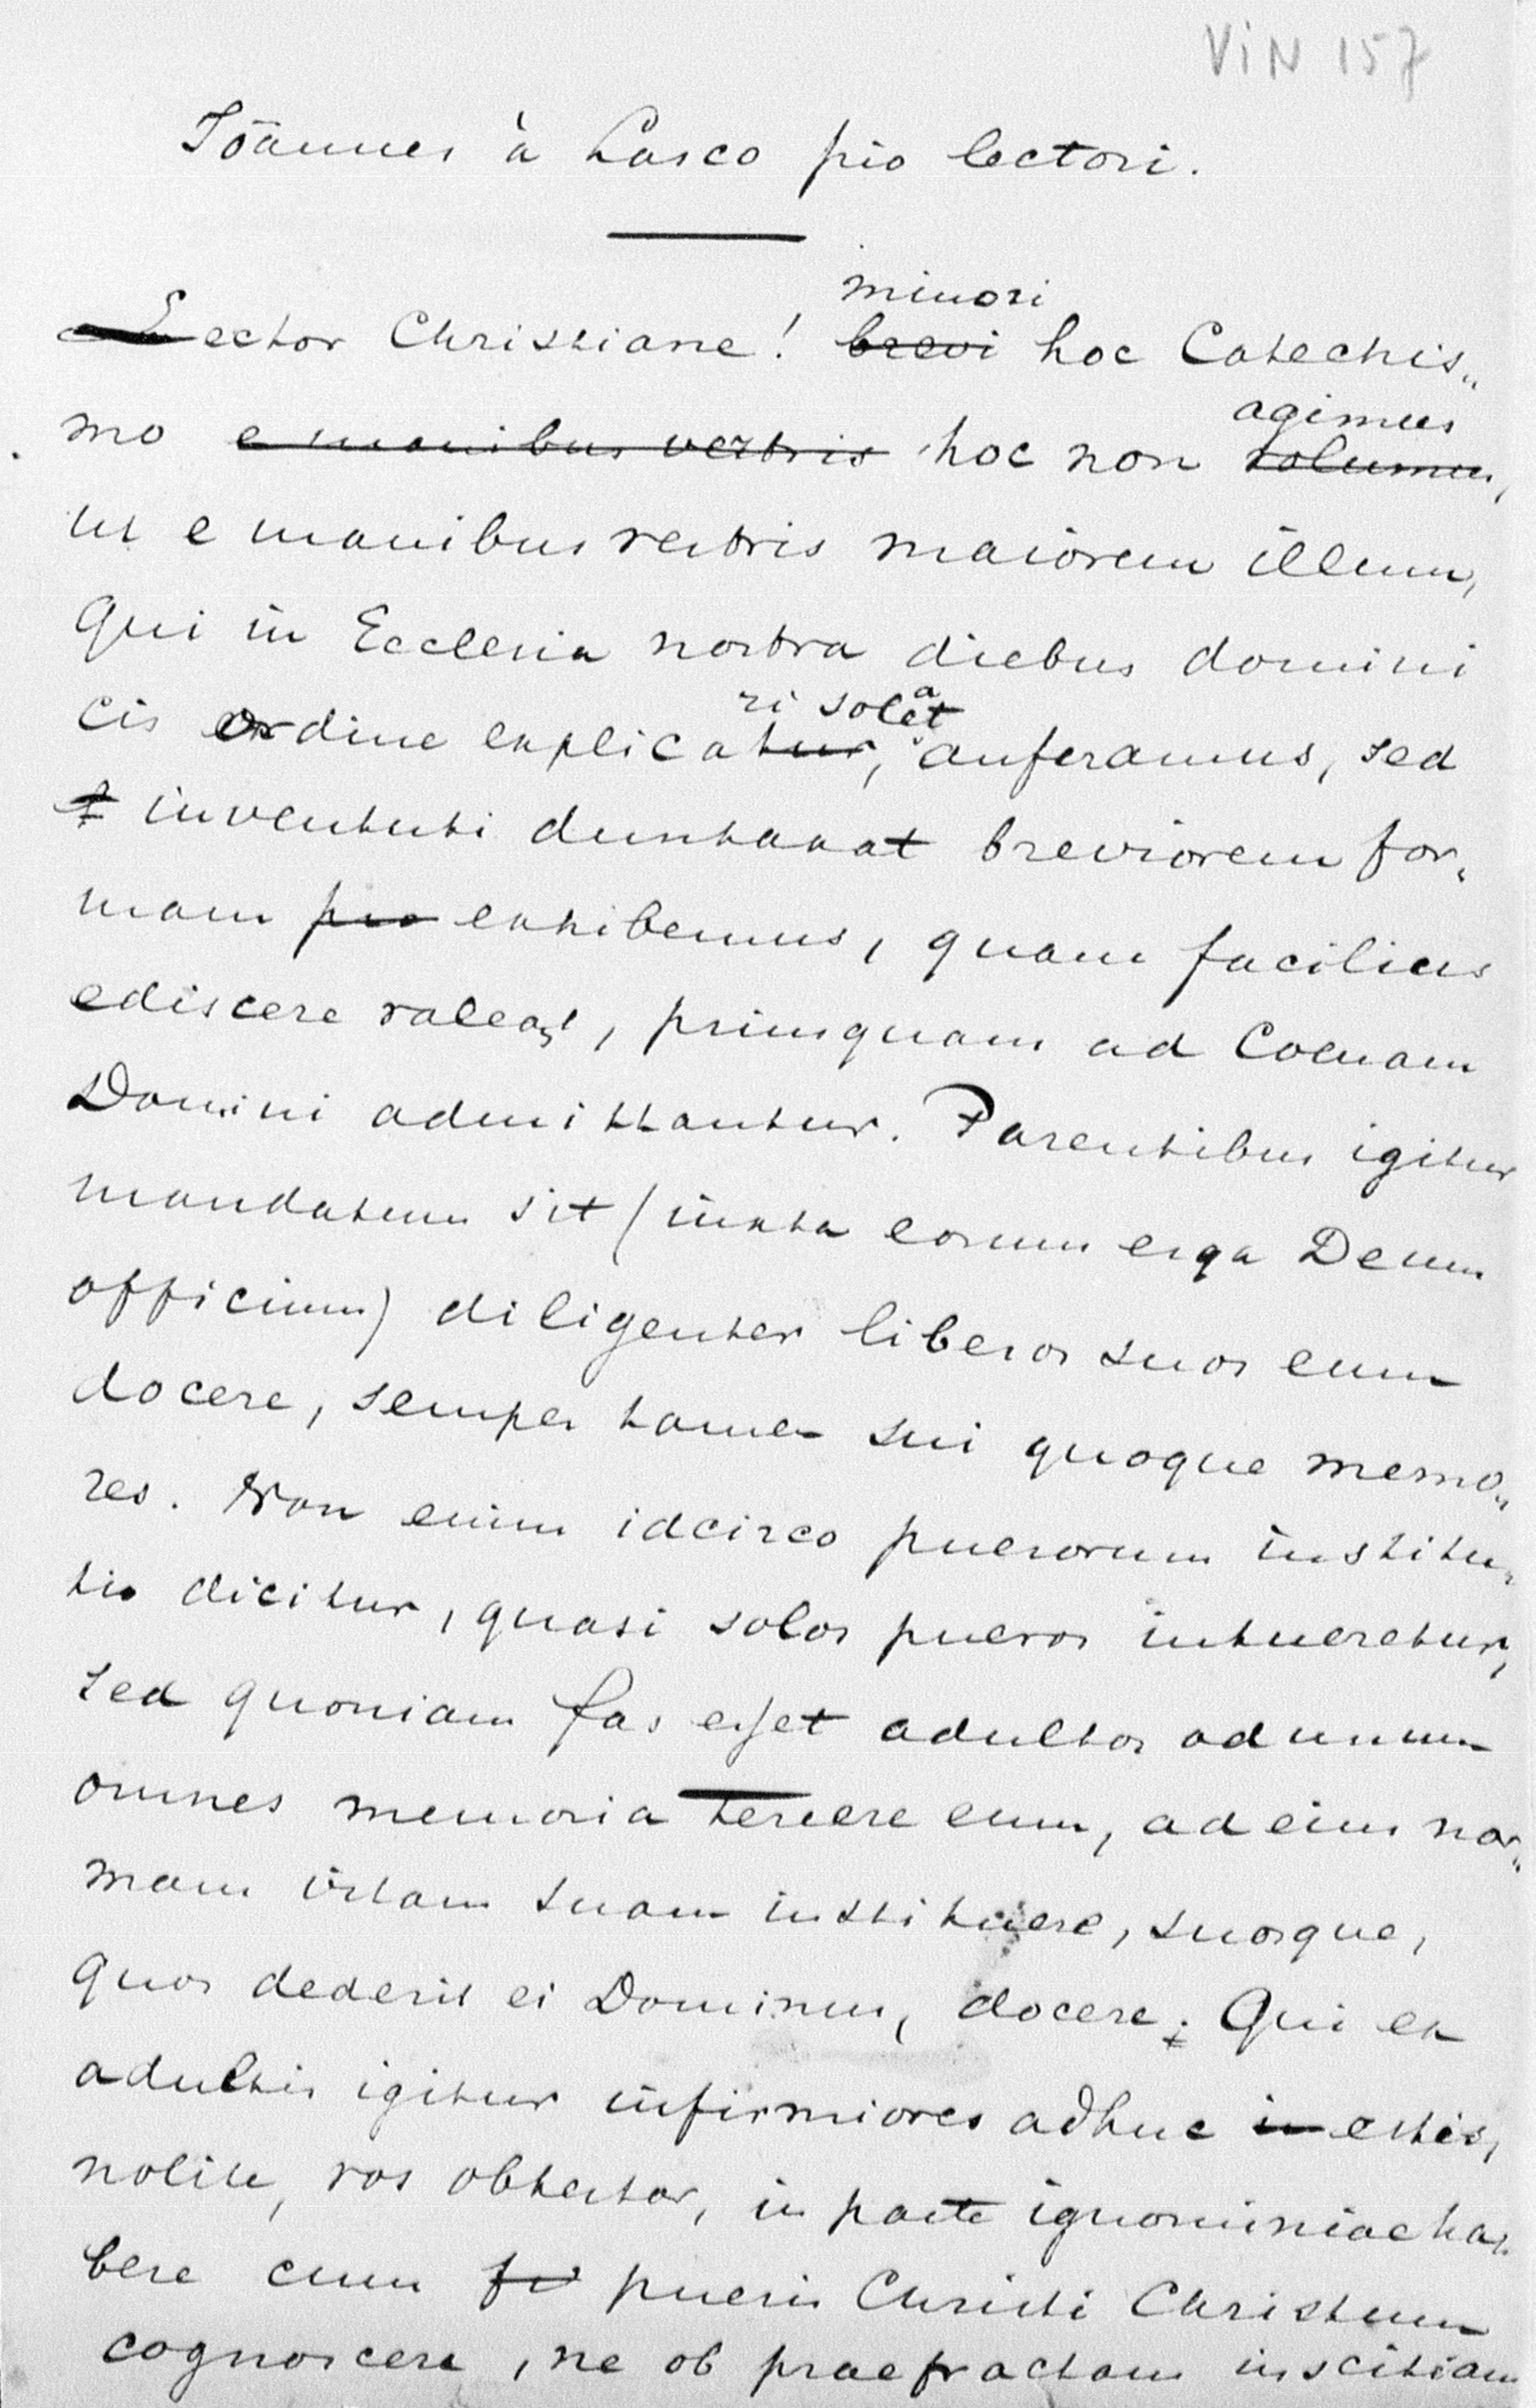 ViN 157
Iōannes à Lasco pio lectori.
minori
Lector Christiane! brevi hoc Catechis„
agimus
mo e manibus vestris hoc non volumus,
ut e manibus vestris maiorem illum,
qui in Ecclesia nostra diebus domini
ri solet a
cis ordine explicatur, auferamus, sed
iuventuti duntaxat breviorem for„
mam pro exhibemus, quam facilius
ediscere valeat, priusquam ad Coenam
Domini admittantur. Parentibus igitur
mandatum sit (iuxta eorum erga Deum
officium) diligenter liberos suos eum
docere, semper tamen sui quoque memo„
res. Non enim idcirco puerorum institu„
tio dicitur, quasi solos pueros intueretur,
sed quoniam fas esset adultos ad unum
omnes memoria tenere eum, ad eius nor„
mam vitam suam instituere, suosque,
quos dederit ei Dominus, docere. Qui ex
adultis igitur infirmiores adhuc in estis,
nolite, vos obtestor, in parte ignominiae ha„
bere cum pueris Christi Christum
cognoscere, ne ob praefractam inscitiam